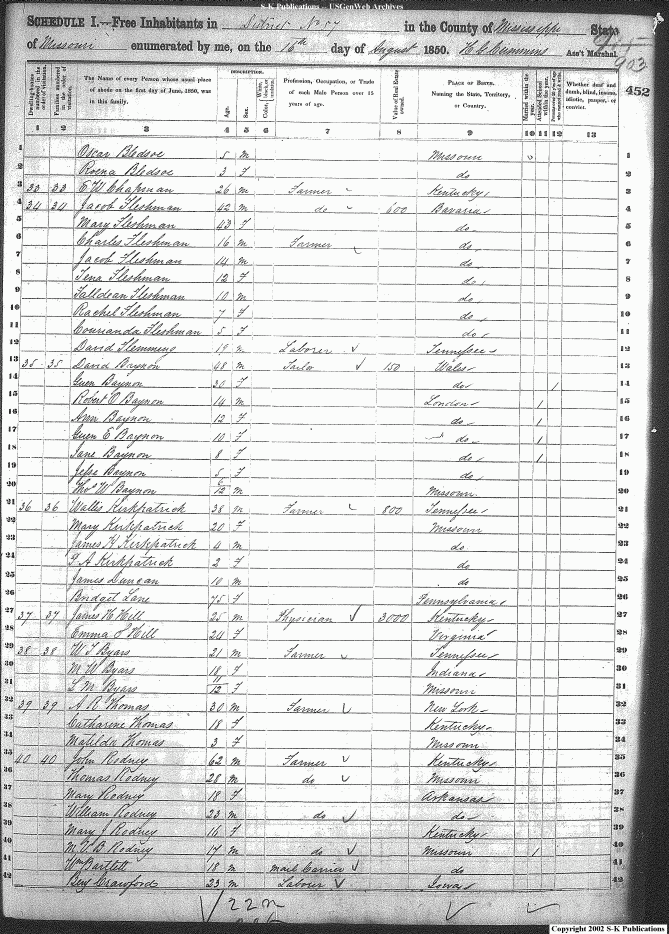 S-K Publications -- USGenWeb Archives
SCHEDULE I.--Free Inhabitants in District No 57 in the County of Mississippi State
of Missouri enumerated by me, on the 16th day of August 1850. Ass't Marshal.
903
452
Dwelling-houses numbered in the order of visitation.
Families numbered in the order of visitation.
The Name of every Person whose usual place of abode on the first day of June, 1850, was in this family.
DESCRIPTION.
Age.
Sex.
Color, White, black, or mulatto.
Profession, Occupation, or Trade of each Male Person over 15 years of age.
Value of Real Estate owned.
PLACE OF BIRTH. Naming the State, Territory, or Country.
Married within the year.
Attended School within the year.
Whether deaf and dumb, blind, insane, idiotic, pauper, or convict.
1 2 3 4 5 6 7 8 9 10 11 12 13
1 Oscar Bledsoe 5 m Missouri 1
2 Roena Bledsoe 3 F do 2
3 33 33 E W Chapman 26 m Farmer Kentucky 3
4 34 34 Jacob Fleshman 42 m do 600 Bavaria 4
5 Mary Fleshman 43 F do 5
6 Charles Fleshman 16 m Farmer do 6
7 Jacob Fleshman 14 m do 7
8 Tena Fleshman 12 F do 8
9 Fleshman 10 m do 9
10 Rachel Fleshman 7 F do 10
11 Fleshman 5 F do 11
12 David Flemming 19 m Laborer Tennessee 12
13 35 35 David Baynon 48 m Tailor 150 Wales 13
14 Guen Baynon 30 F do 1 14
15 Robert O Baynon 14 m London 1 15
16 Ann Baynon 12 F do 1 16
17 Guen E Baynon 10 F do 1 17
18 Jane Baynon 8 F do 1 18
19 Jesse Baynon 5 F do 19
20 Thos W Baynon 6/12 m Missouri 20
21 36 36 Wallis Kirkpatrick 38 m Farmer 800 Tennessee 21
22 Mary Kirkpatrick 20 F Missouri 22
23 James K Kirkpatrick 4 m do 23
24 A Kirkpatrick 2 F do 24
25 James Duncan 10 m do 25
26 Bridget Lane 75 F Pennsylvania 26
27 37 37 James H Hill 25 m Physician 3000 Kentucky 27
28 Emma O Hill 24 F Virginia 28
29 38 38 W Byars 21 m Farmer Tennessee 29
30 M W Byars 18 F Indiana 30
31 S M Byars 11/12 F Missouri 31
32 39 39 A R Thomas 30 m Farmer New York 32
33 Catharine Thomas 18 F Kentucky 33
34 Matilda Thomas 3 F Missouri 34
35 40 40 John Rodney 62 m Farmer Kentucky 35
36 Thomas Rodney 28 m do Missouri 36
37 Mary Rodney 18 F Arkansas 37
38 William Rodney 23 m do do 38
39 Mary J Rodney 16 F Kentucky 39
40 M V B Rodney 17 m do Missouri 1 40
41 Wm Bartlett 18 m mail Carrier do 41
42 Benj Crawford 23 m Laborer Iowa 42
22 m
Copyright 2002 S-K Publications